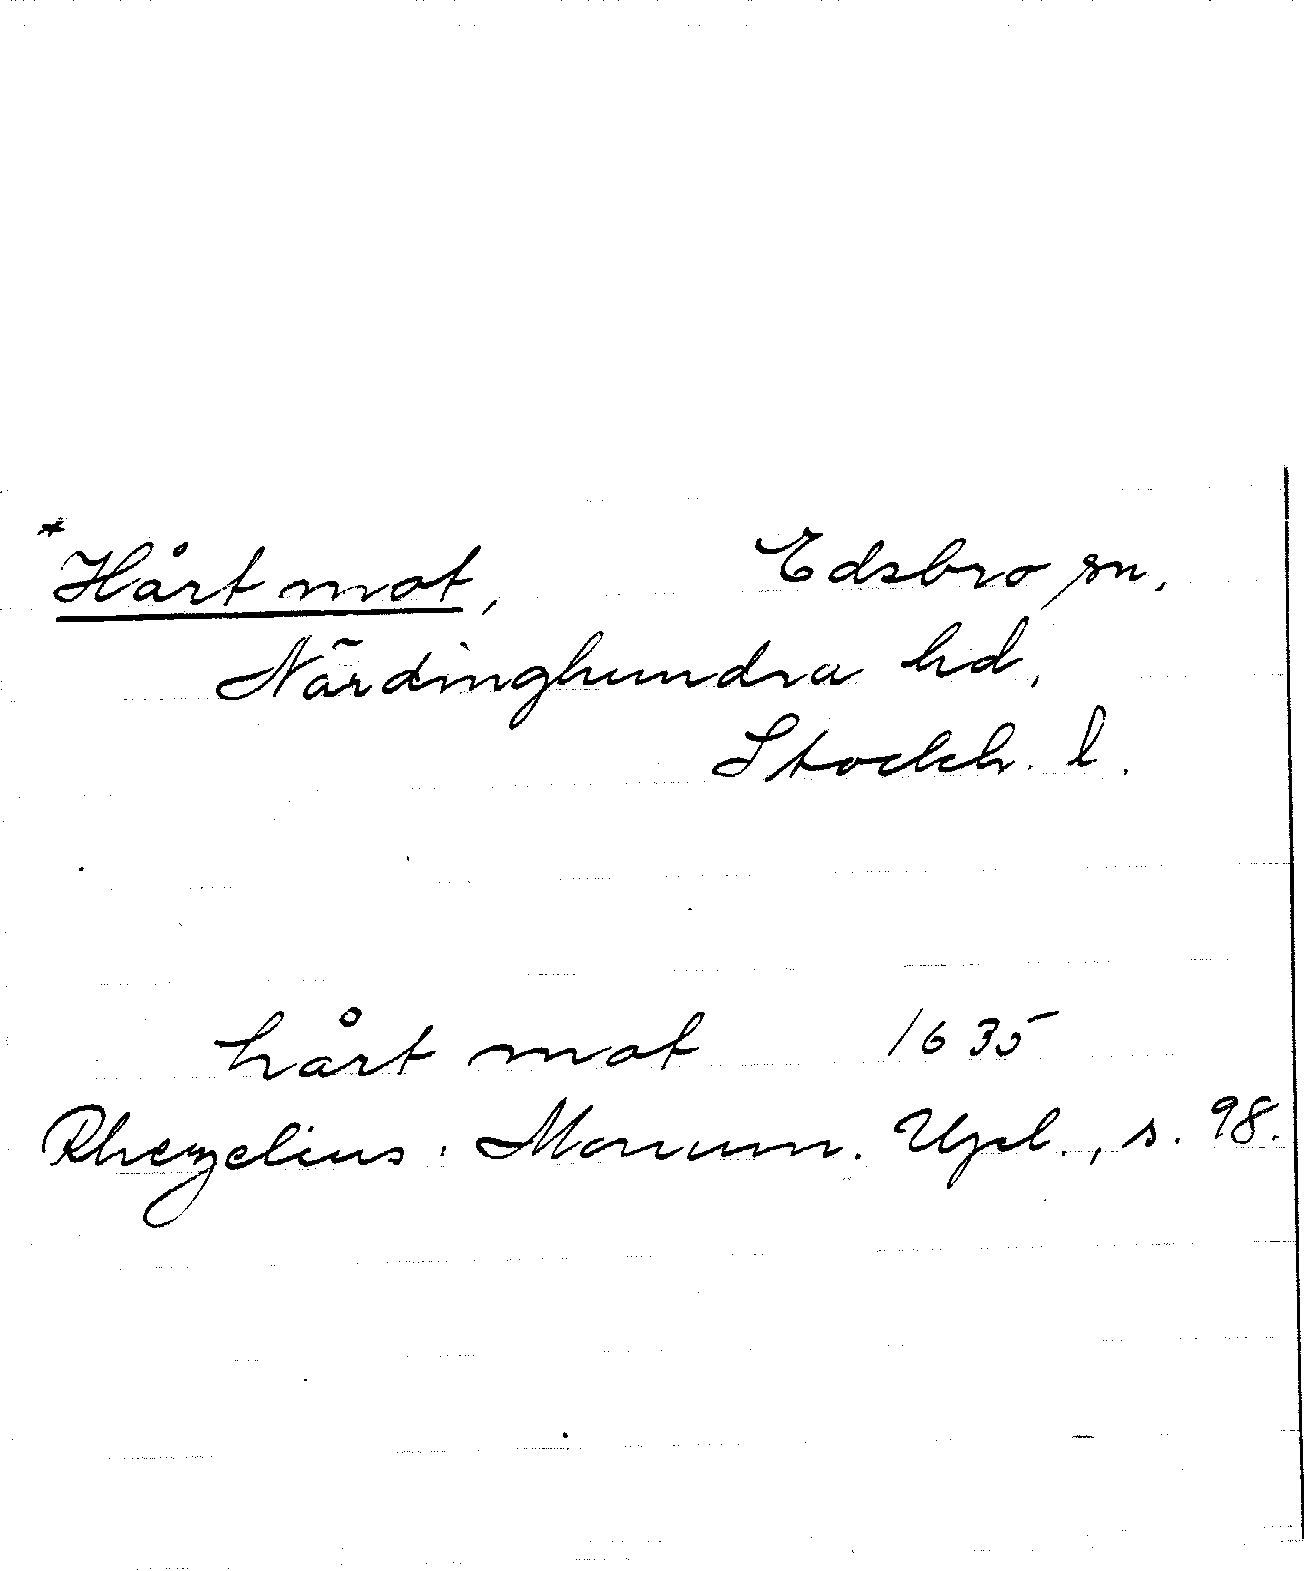 *Hårt mot, Edsbro sn,
Närdinghundra hd,
Stockh. l.
hårt mot 1635
Rhezelius: Monum. Upl., s. 98.